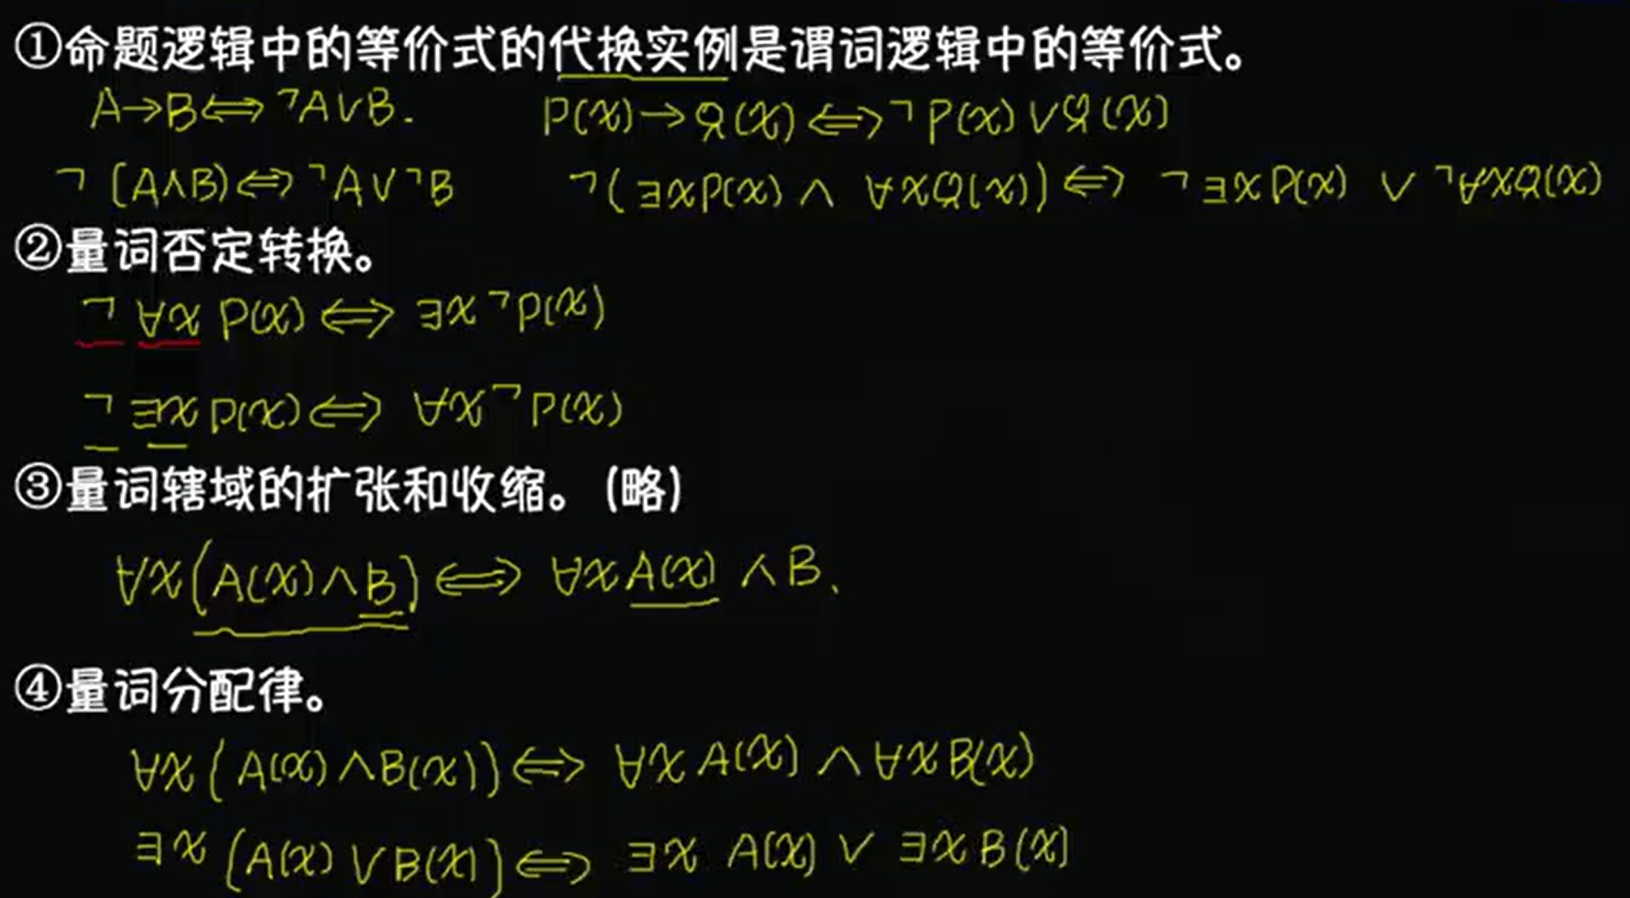 ①命题逻辑中的等价式的代换实例是谓词逻辑中的等价式。
A→B⇔¬A∨B. P(x)→Q(x)⇔¬P(x)∨Q(x)
¬(A∧B)⇔¬A∨¬B ¬(∃xP(x)∧∀xQ(x))⇔¬∃xP(x)∨¬∀xQ(x)
②量词否定转换。
¬∀xP(x)⇔∃x¬P(x)
¬∃xP(x)⇔∀x¬P(x)
③量词辖域的扩张和收缩。(略)
∀x(A(x)∧B)⇔∀xA(x)∧B、
④量词分配律。
∀x(A(x)∧B(x))⇔∀xA(x)∧∀xB(x)
∃x(A(x)∨B(x))⇔∃xA(x)∨∃xB(x)